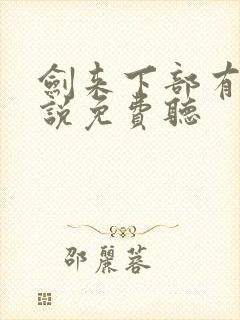 劍来下部有
說免費聽
邵麗蓉